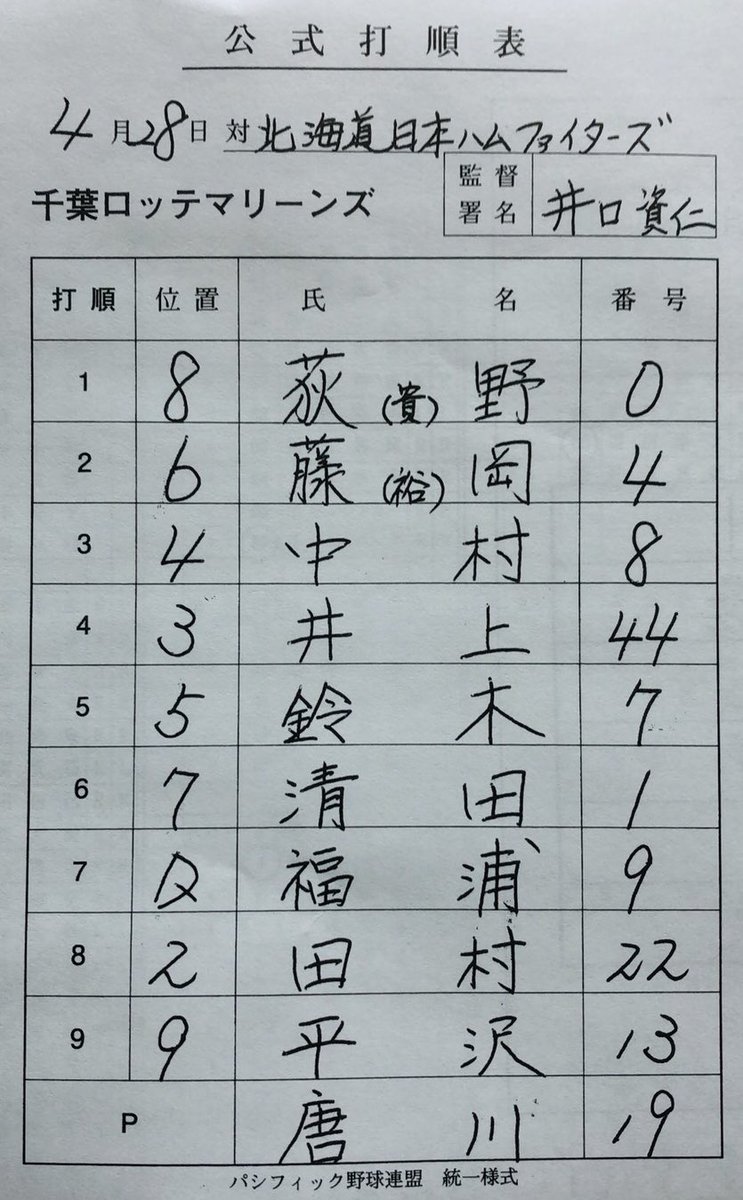 公式打順表
4月28日 対 北海道日本ハムファイターズ
千葉ロッテマリーンズ 監督署名 井口資仁
打順 位置 氏名 番号
1 8 荻(貴)野 0
2 6 藤(裕)岡 4
3 4 中村 8
4 3 井上 44
5 5 鈴木 7
6 7 清田 1
7 D 福浦 9
8 2 田村 22
9 9 平沢 13
P 唐川 19
パシフィック野球連盟 統一様式